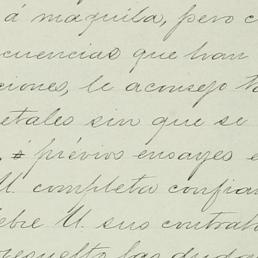 á maquila, pero c
cuencias que van
ciones, le aconsejo
etales sin que se
á prévios ensayes e
U. completa confian
ebre U. sus contrato
resuelto las dudas